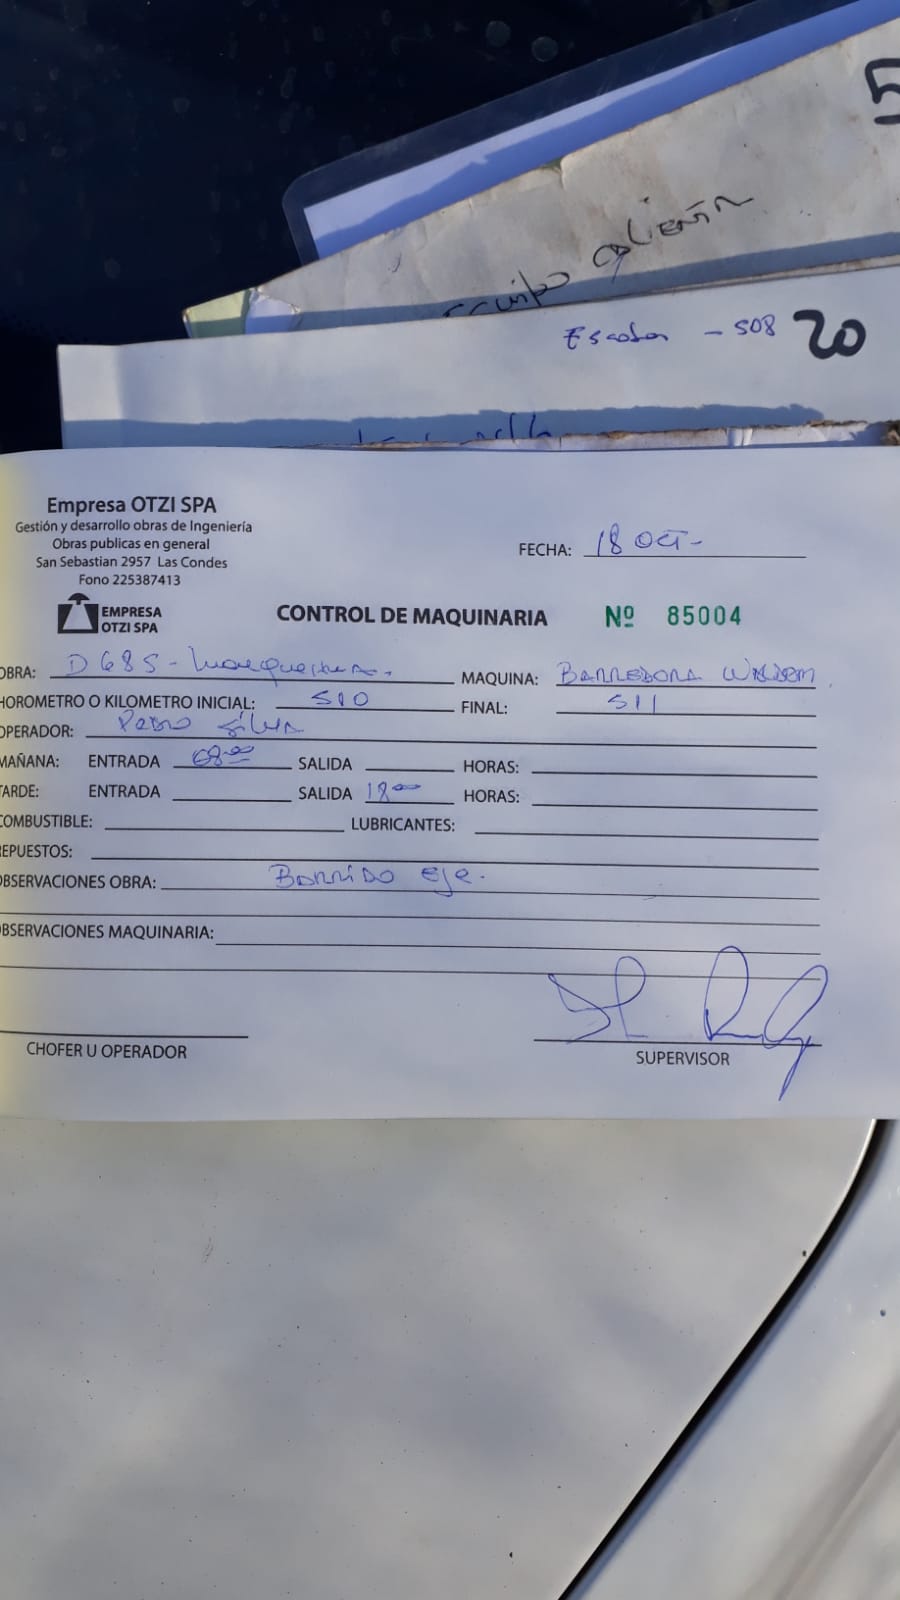 5
equipo
Escoba - 508 20
Empresa OTZI SPA
Gestión y desarrollo obras de Ingeniería
Obras publicas en general
San Sebastian 2957 Las Condes
Fono 225387413
EMPRESA
OTZI SPA
FECHA: 18 OCT-
CONTROL DE MAQUINARIA Nº 85004
OBRA: D685-
MAQUINA: BARREDORA
HOROMETRO O KILOMETRO INICIAL: 510
FINAL: 511
OPERADOR: Pedro Silva
MAÑANA: ENTRADA 08:00 SALIDA HORAS:
TARDE: ENTRADA SALIDA 18:00 HORAS:
COMBUSTIBLE: LUBRICANTES:
REPUESTOS:
OBSERVACIONES OBRA: Barrido eje.
OBSERVACIONES MAQUINARIA:
CHOFER U OPERADOR
SUPERVISOR